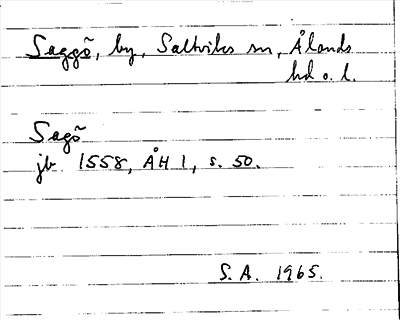 Saggö, by, Saltviks sn, Ålands
hd o. l.
Sagö
jb 1558, ÅH 1, s. 50.
S.A. 1965.